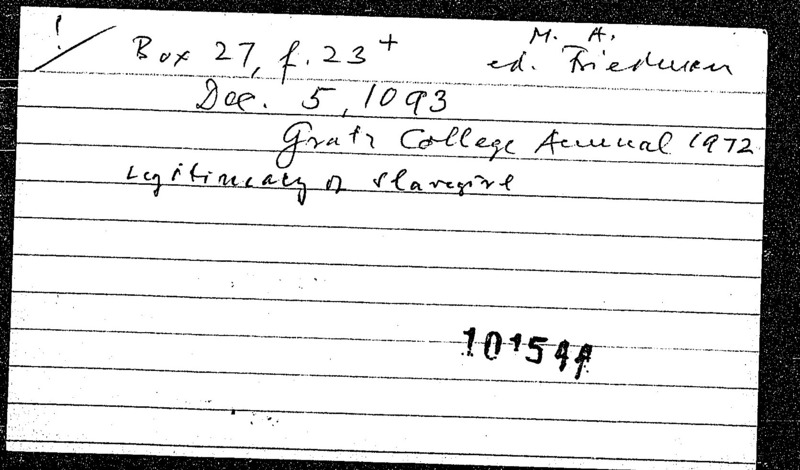 ! / Box 27, f. 23 + ed. M. A. Friedman
Dec. 5, 1093
Gratz College Annual 1972
Legitimacy of slavegirl
101544